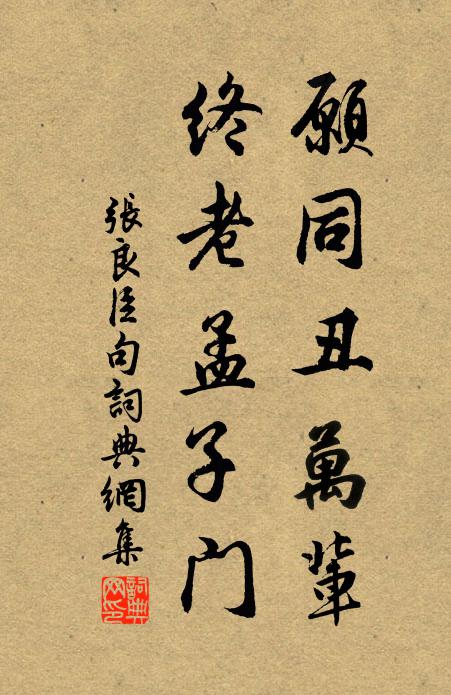 願同丑萬輩
終老孟子門
張良臣句詞典網集
詞典
网印